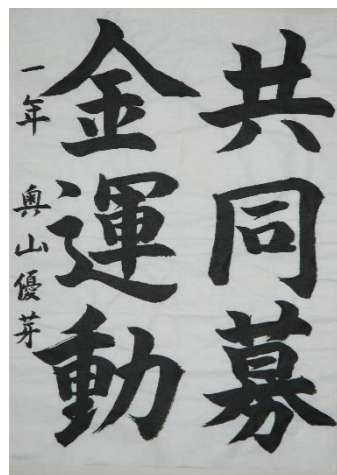 共同募
金運動
一年 奥山優芽